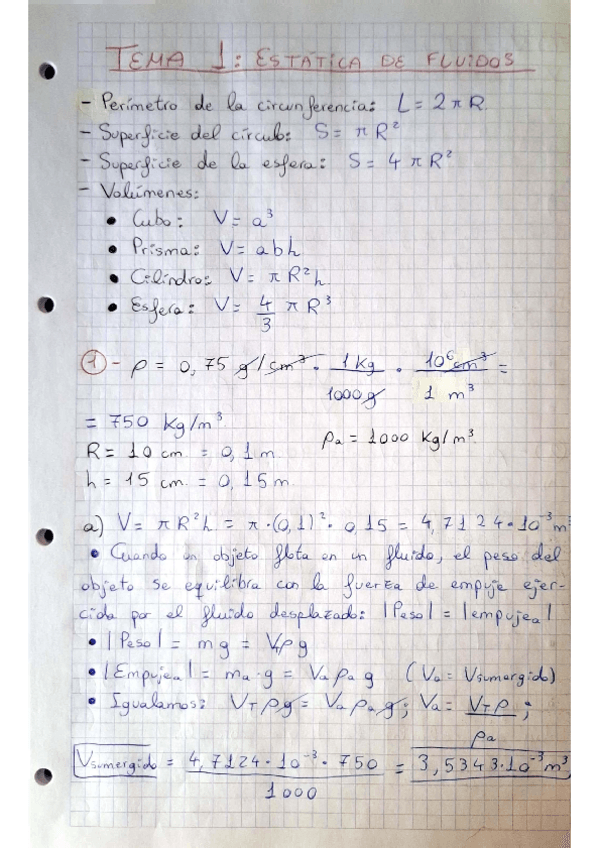 TEMA 1: ESTÁTICA DE FLUIDOS
- Perímetro de la circunferencia: L = 2πR
- Superficie del círculo: S = πR²
- Superficie de la esfera: S = 4πR²
- Volúmenes:
• Cubo: V = a³
• Prisma: V = abh
• Cilindro: V = πR²h
• Esfera: V = 4/3 πR³
① - ρ = 0,75 g/cm³ · 1 Kg/1000 g · 10⁶ cm³/1 m³ =
= 750 Kg/m³
ρa = 1000 Kg/m³
R = 10 cm = 0,1 m
h = 15 cm = 0,15 m
a) V = πR²h = π·(0,1)²·0,15 = 4,7124·10⁻³ m³
• Cuando un objeto flota en un fluido, el peso del
objeto se equilibra con la fuerza de empuje ejer-
cida por el fluido desplazado: |Peso| = |empujea|
• |Peso| = mg = VTρg
• |Empujea| = ma·g = Vaρag (Va = Vsumergido)
• Igualamos: VTρg = Vaρag; Va = VTρ/ρa;
Vsumergido = 4,7124·10⁻³·750/1000 = 3,5343·10⁻³ m³